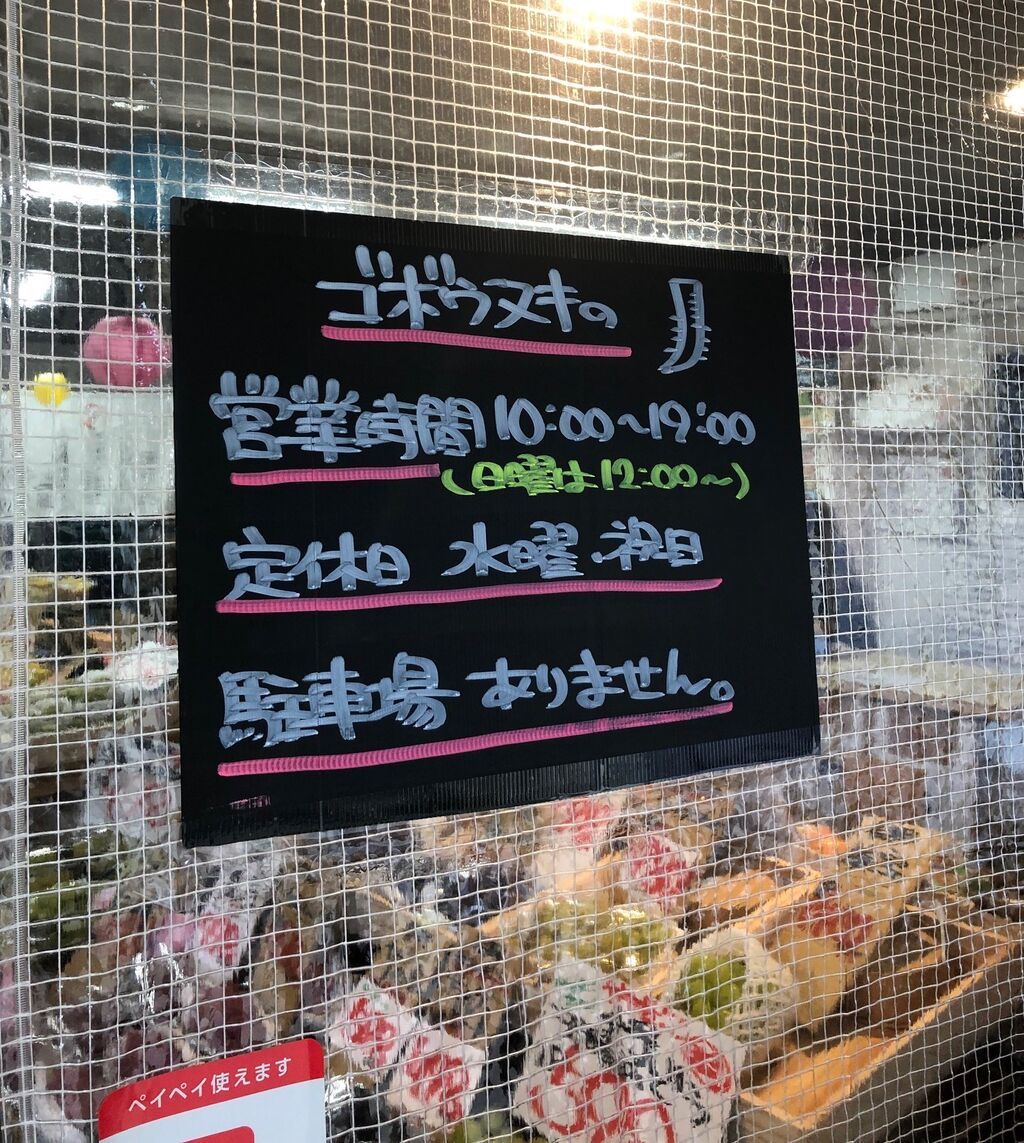 ゴボウヌキの
営業時間 10:00~19:00
(日曜は12:00~)
定休日 水曜.祝日
駐車場 ありません。
ペイペイ使えます